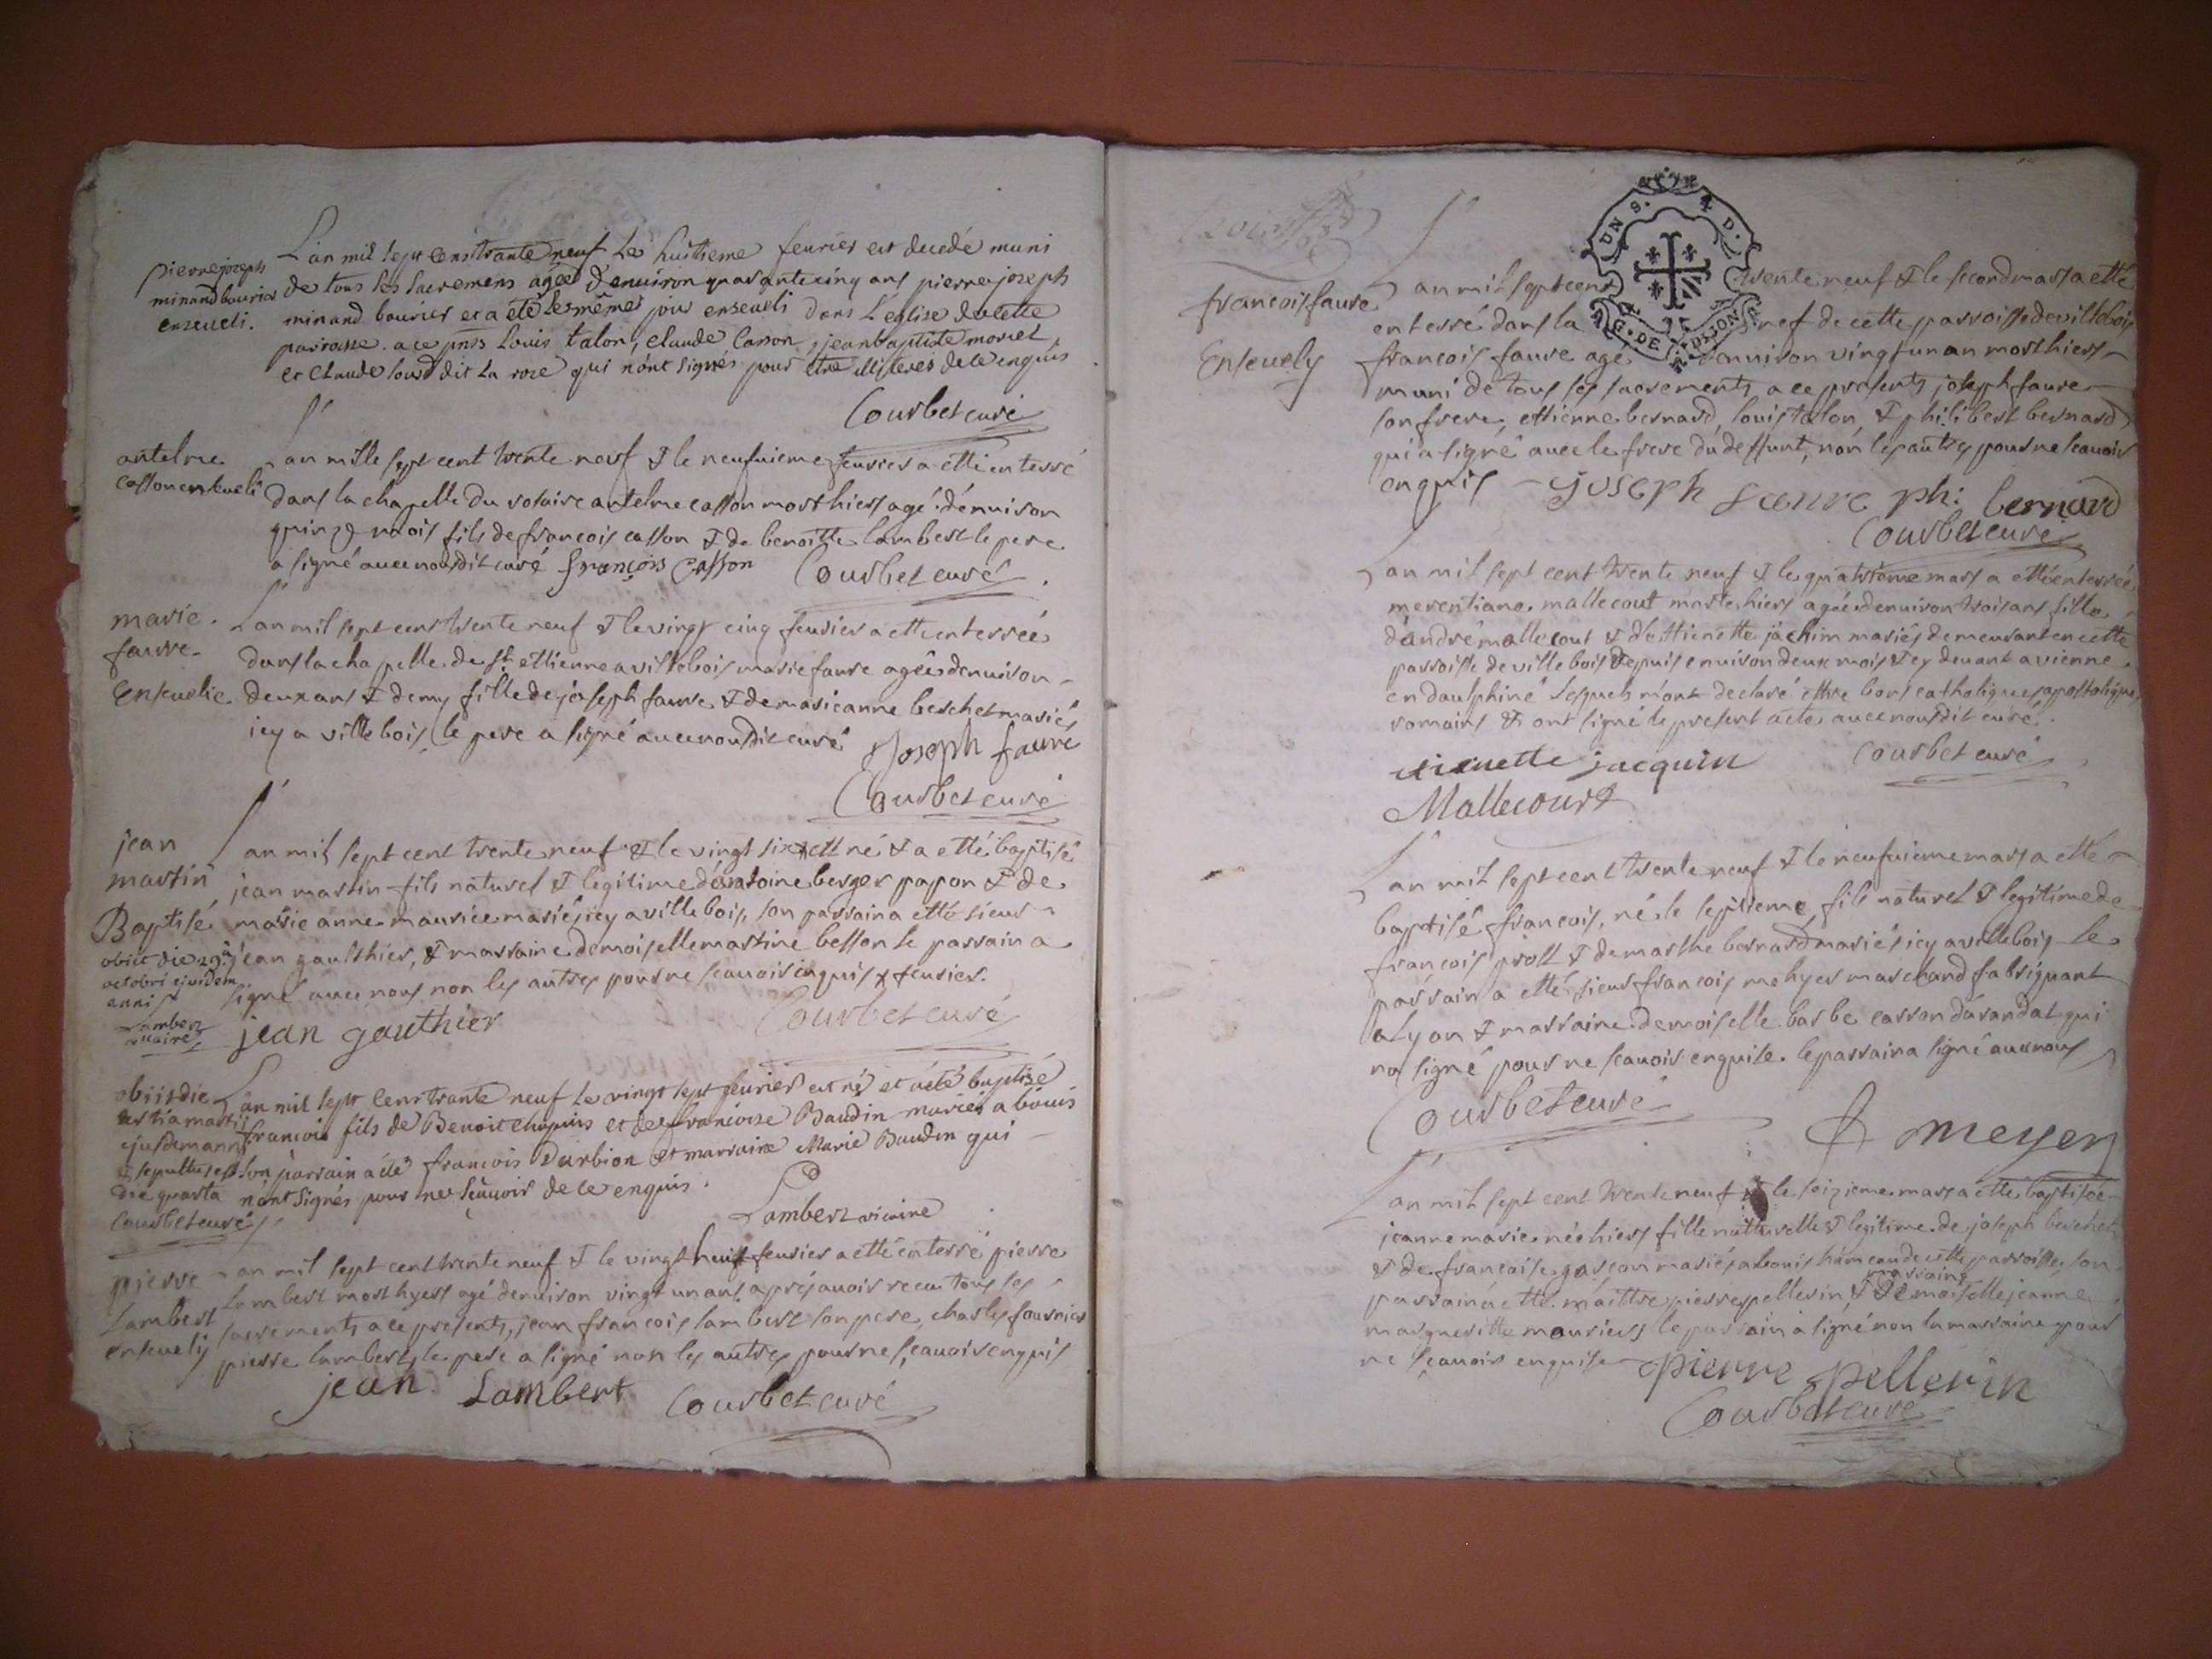 pierre joseph
minand bourier
enseveli.
L'an mil sept cens trante neuf Le huitieme fevrier est decedé muni
de tous les sacremens agée d'environ quarante cinq ans pierre joseph
minand bourier et a été le même jour enseveli dans L'église de cette
parroisse. a ce pnts Louis talon, claude Casson, jean baptiste moriet
et Claude sourd dit la roze qui n'ont signés pour être illiteres de ce enquis
Courbet curé
antelme
casson enseveli
L'an mille sept cent trente neuf & le neufuieme feurier a etté enterré
dans la chapelle du rosaire antelme casson mort hiers agé d'enuiron
quinze mois fils de francois casson & de benoitte lambert le pere
a signé auec nousdit curé françois Casson Courbet curé
marie
faure
Enseuelie
L'an mil sept cens trente neuf & le vingt cinq feurier a etté enterrée
dans la chapelle de st ettienne a villebois marie faure agée denuiron
deux ans & demy fille de joseph faure & de marie anne bechet mariés
icy a villebois le pere a signé auec nousdit curé Joseph fauré
Courbet curé
jean
martin
Baptisé
obiit die 29a
octobri ejusdem
anni
Lambert
vicaire
L'an mil sept cent trente neuf & le vingt six x est né & a etté baptisé
jean martin fils naturel & legitime d'antoine berger papon & de
marie anne maurice mariés icy a villebois, son parrain a etté sieur
jean gaulthier, & marraine demoiselle martine besson le parrain a
signé auec nous non les autres pour ne scauoir enquis x feurier.
jean gauthier Courbet curé
obiit die
tertia martii
ejusdem anni
& sepultus est
die quarta
Courbet curé
L'an mil sept cens trante neuf Le vingt sept feurier est né et a été baptisé
francois fils de Benoit chapuis et de francoise Baudin mariés a bouis
son parrain a été francois Darbion et marraine Marie Baudin qui
n'ont signés pour ne sçavoir de ce enquis.
Lambert vicaire
pierre
Lambert
enseuely
L'an mil sept cent trente neuf & le vingt huit feurier a etté enterré pierre
Lambert mort hyers agé denuiron vingt un ans apres auoir receu tous les
sacrements a ce presents, jean francois lambert son pere, charles fournier
pierre lambert, le pere a signé non les autres pour ne sçauoir enquis
jean Lambert Courbet curé
francois faure
Enseuely
L'an mil sept cens trente neuf & le second mars a etté
enterré dans la nef de cette parroisse de villebois
francois faure agé denuiron vingt un an mort hiers
muni de tous les sacrements a ce presents joseph faure
son frere, ettienne bernard, louis talon, & philibert bernard
qui a signé auec le frere du deffunt, non les autres pour ne scauoir
enquis joseph faure ph: bernard
Courbet curé
L'an mil sept cent trente neuf & le quatrieme mars a etté enterrée
merentiane mallecourt morte hiers agée denuiron trois ans fille
d'andré mallecout & d'ettienette jachim mariés demeurant en cette
parroisse de villebois depuis enuiron deux mois & cy deuant a vienne
en dauphiné lesquels m'ont declaré ettre bons catholiques apostoliques
romains & ont signé le present acte auec nousdit curé.
etienette jacquin Courbet curé
Mallecourt
L'an mil sept cent trente neuf & le neufuieme mars a etté
baptisé francois, né le septieme fils naturel & legitime de
francois prost & de marthe bernard mariés icy a villebois le
parrain a etté sieur francois mehyer marchand fabriquant
a Lyon & marraine demoiselle barbe casson darandat qui
na signé pour ne scauoir enquise. le parrain a signé auec nous
Courbet curé
f meyer
L'an mil sept cent trente neuf & le seizieme mars a etté baptisée
jeanne marie née hiers fille naturelle & legitime de joseph bechet
& de francoise gascon mariés a bouis hameau de cette parroisse, son
parrain a etté maittre pierre pellerin, & marraine demoiselle jeanne
margueritte mouriers le parrain a signé non la marraine pour
ne scauoir enquise pierre pellerin
Courbet curé
UN S. 4 D.
G. DE DIJON